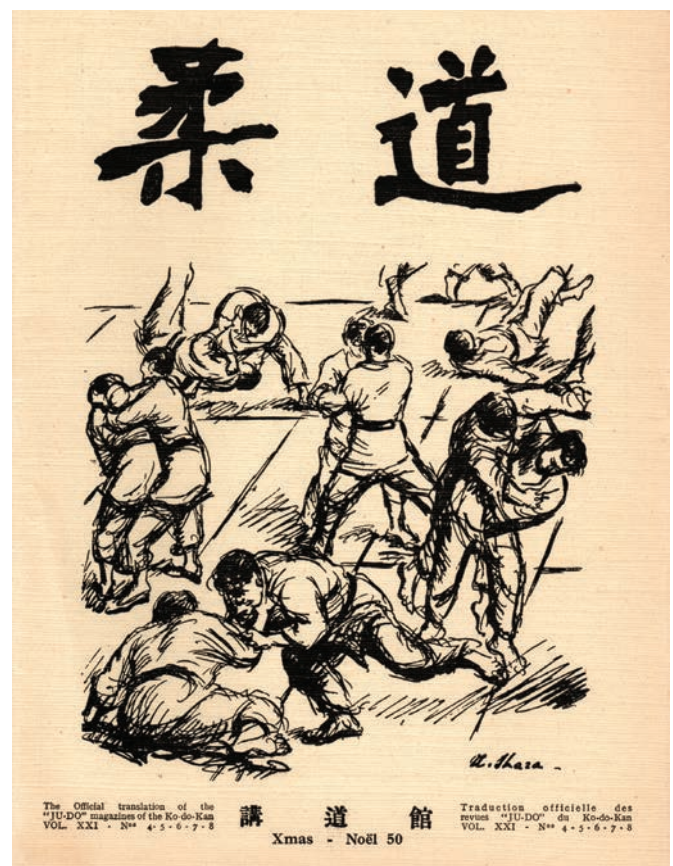 柔 道
H. Ihara
The Official translation of the
"JU-DO" magazines of the Ko-do-Kan
VOL. XXI - Nos 4-5-6-7-8
講 道 館
Xmas - Noël 50
Traduction officielle des
revues "JU-DO" du Ko-do-Kan
VOL. XXI - Nos 4-5-6-7-8